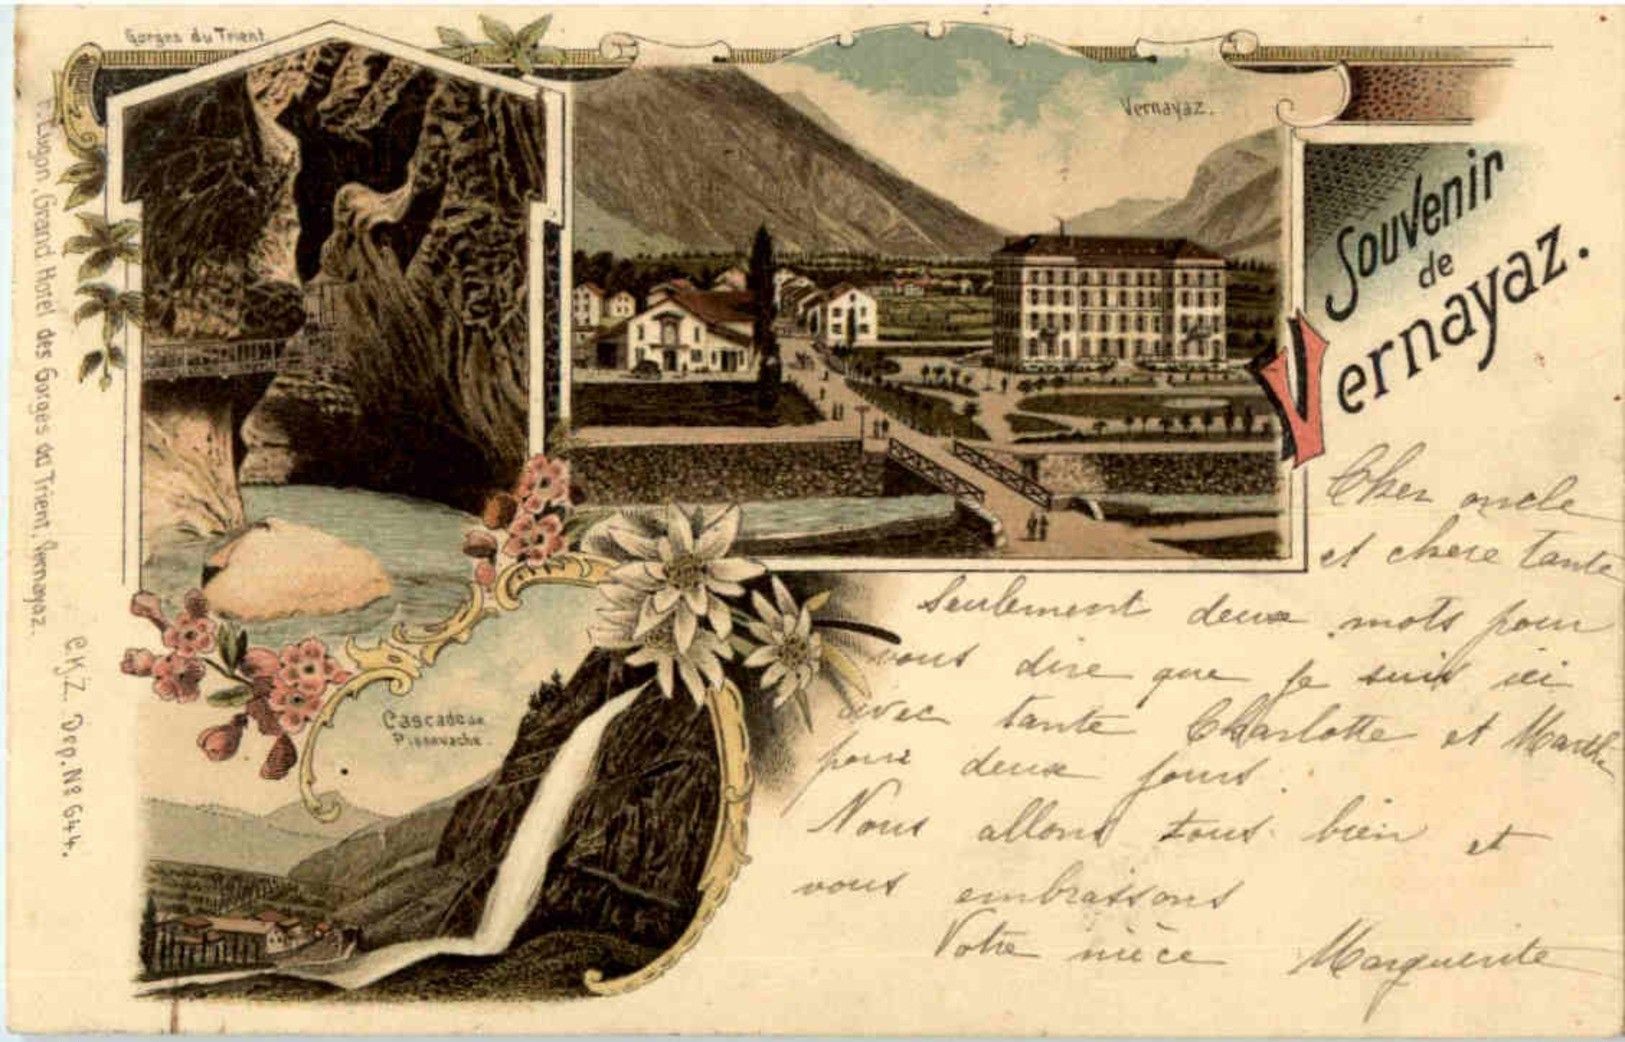 Gorges du Trient
Vernayaz.
Souvenir
de
Vernayaz.
Cascade de
Pissevache.
F. Lugon, Grand Hotel des Gorges du Trient, Vernayaz.
C.K.Z. Dep. Nº 644.
Cher oncle
et chere tante
Seulement deux mots pour
vous dire que je suis ici
avec tante Charlotte et
pour deux jours.
Nous allons tous bien et
vous embrassons
Votre nièce Marguerite